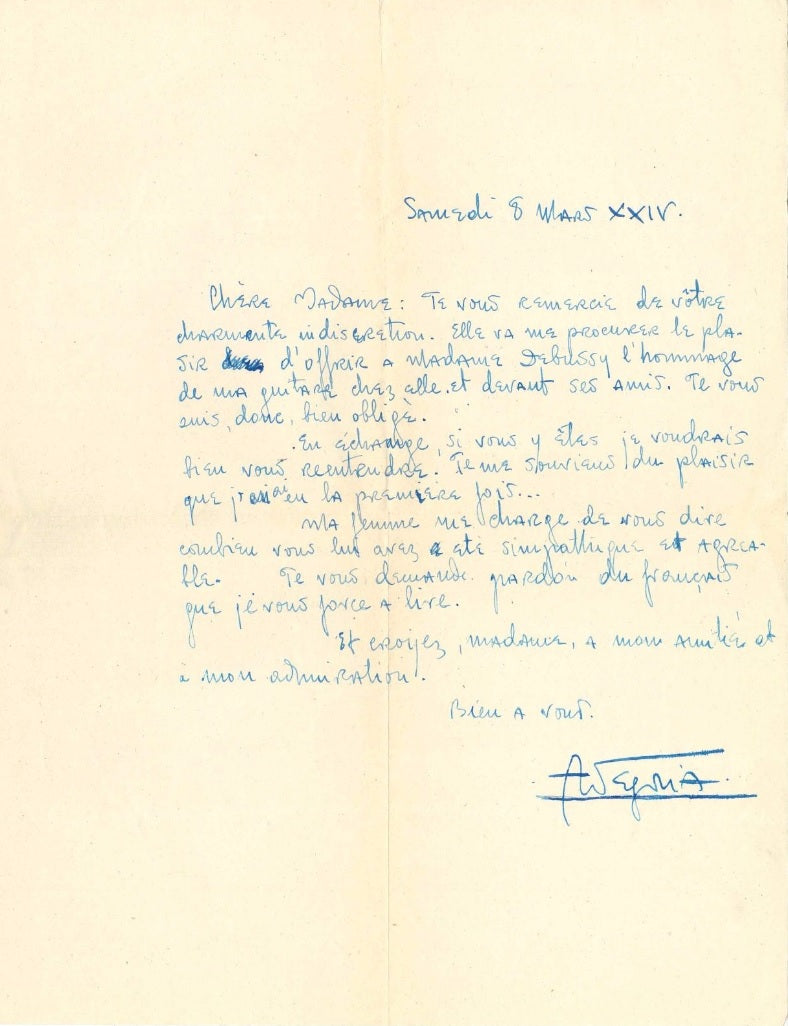 Samedi 8 Mars XXIV.
Chère Madame: Je vous remercie de vôtre
charmante indiscretion. Elle va me procurer le pla-
sir d'offrir a Madame Debussy l'hommage
de ma guitare chez elle et devant ses amis. Je vous
suis, donc, bien obligè.
En échange, si vous y êtes je voudrais
bien vous reentendre. Je me souviens du plaisir
que j'ai eu la premiere fois...
Ma femme me charge de vous dire
combien vous lui avez eté simpathique et agrea-
ble. Je vous demande pardon du français
que je vous force a lire.
Et croyez, madame, a mon amitié et
à mon admiration.
Bien a vous.